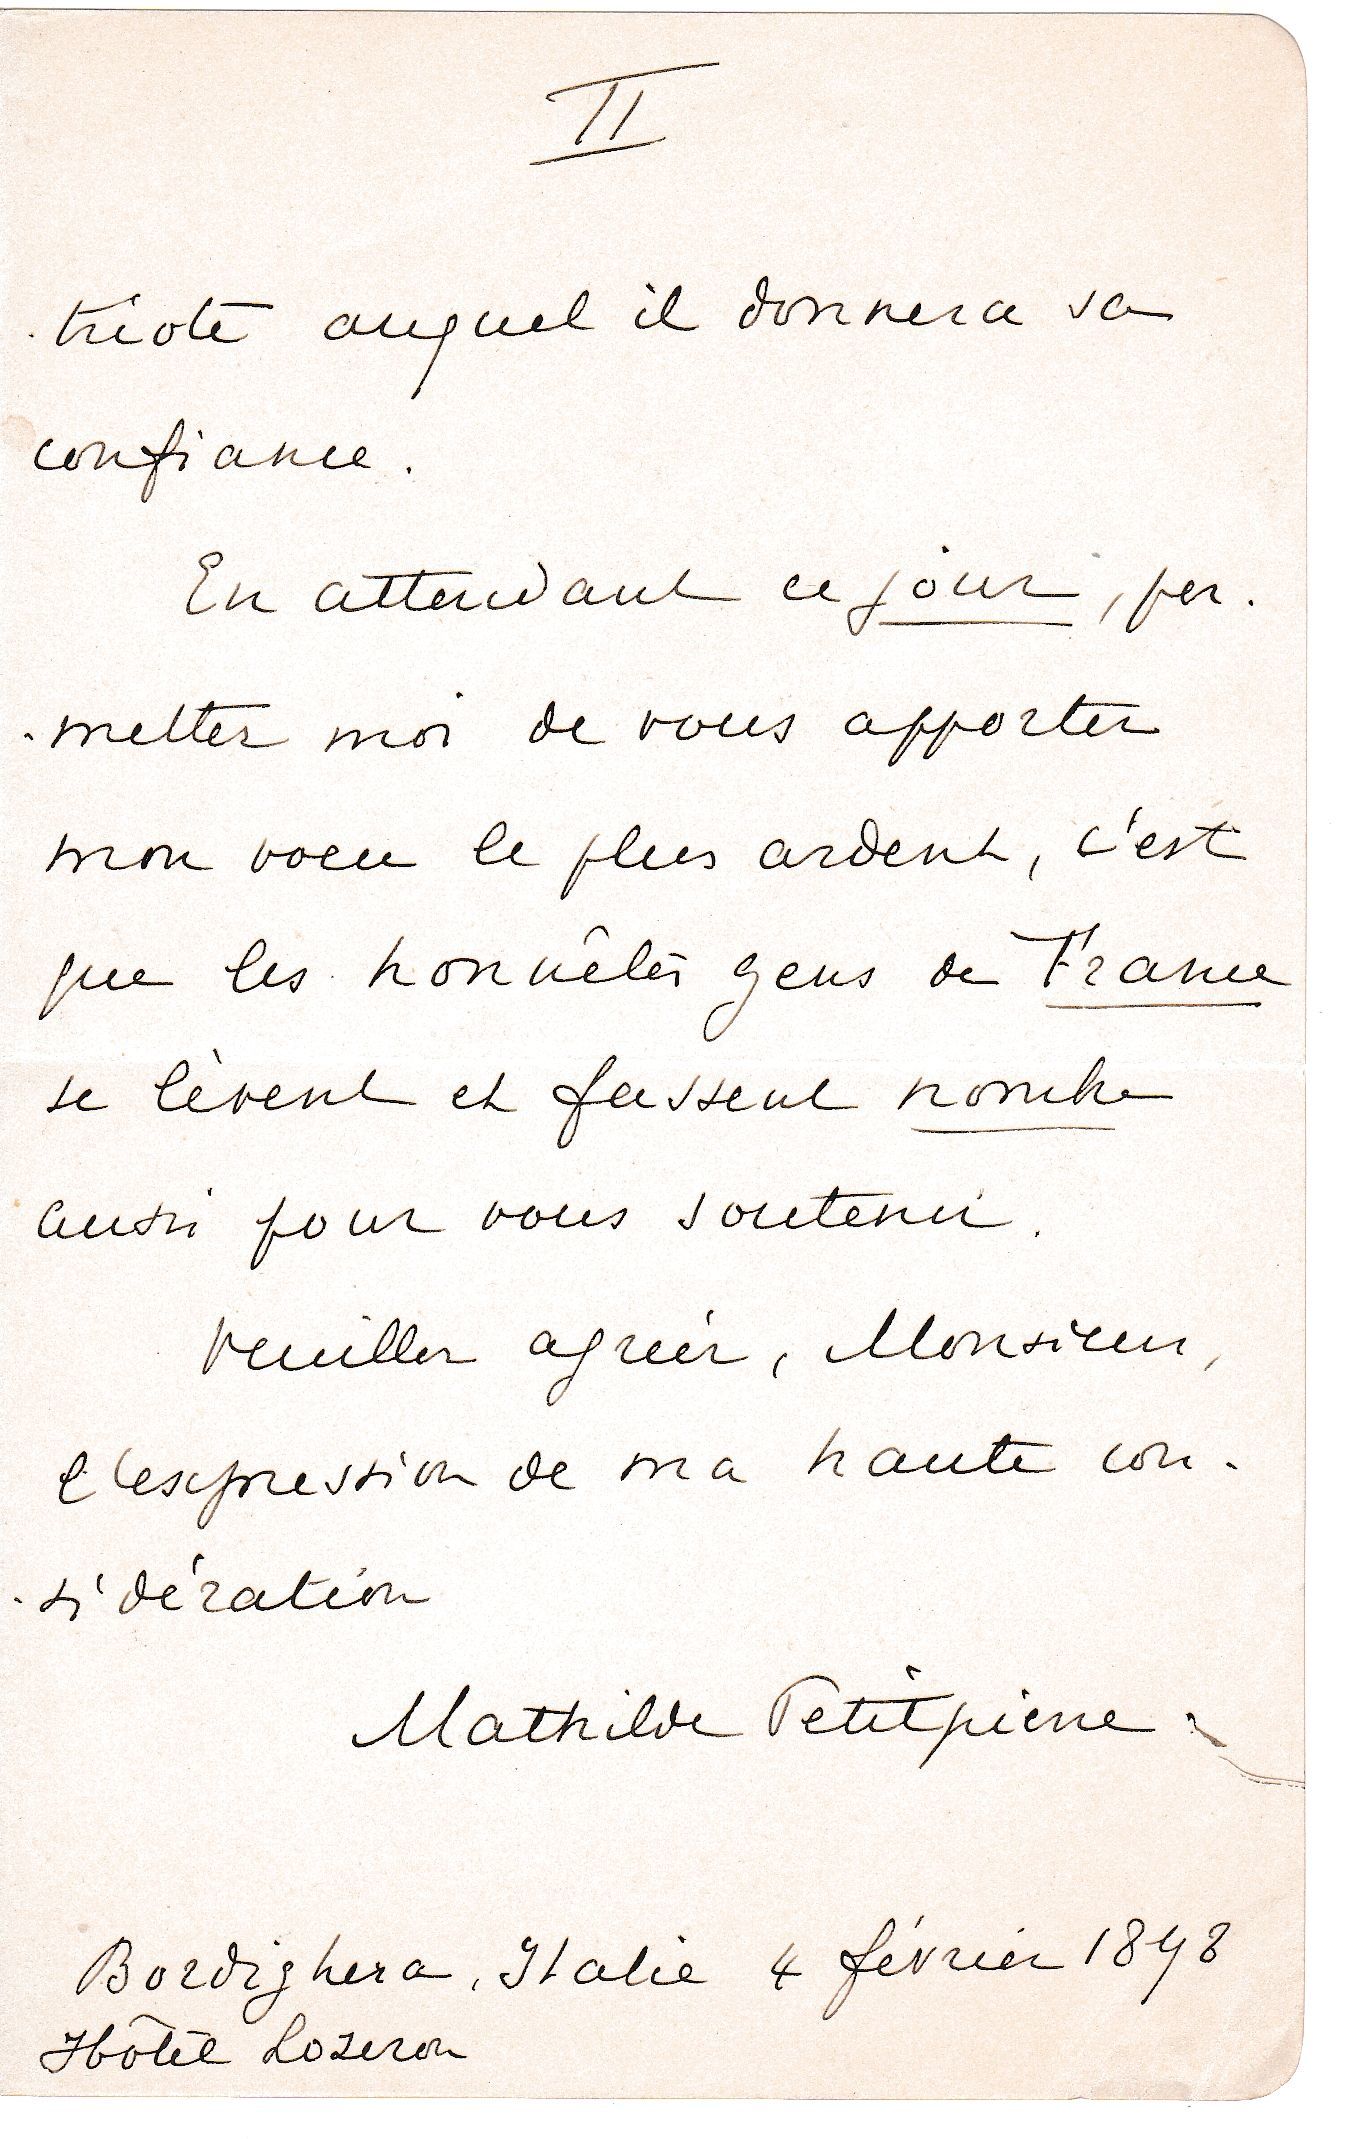 II
-triote auquel il donnera sa
confiance.
En attendant ce jour, per-
-mettez moi de vous apporter
mon voeu le plus ardent, c'est
que les honnêtes gens de France
se lèvent et fassent nombre
aussi pour vous soutenir.
Veuillez agréer, Monsieur,
l'expression de ma haute con-
-sidération
Mathilde Petitpierre.
Bordighera, Italie 4 février 1898
Hôtel Lozeron